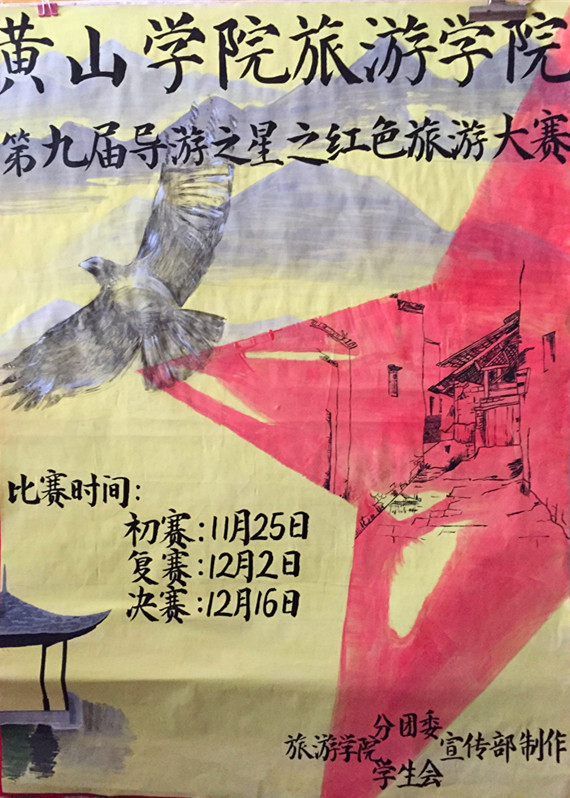 黄山学院旅游学院
第九届导游之星之红色旅游大赛
比赛时间：
初赛：11月25日
复赛：12月2日
决赛：12月16日
分团委
旅游学院 宣传部制作
学生会